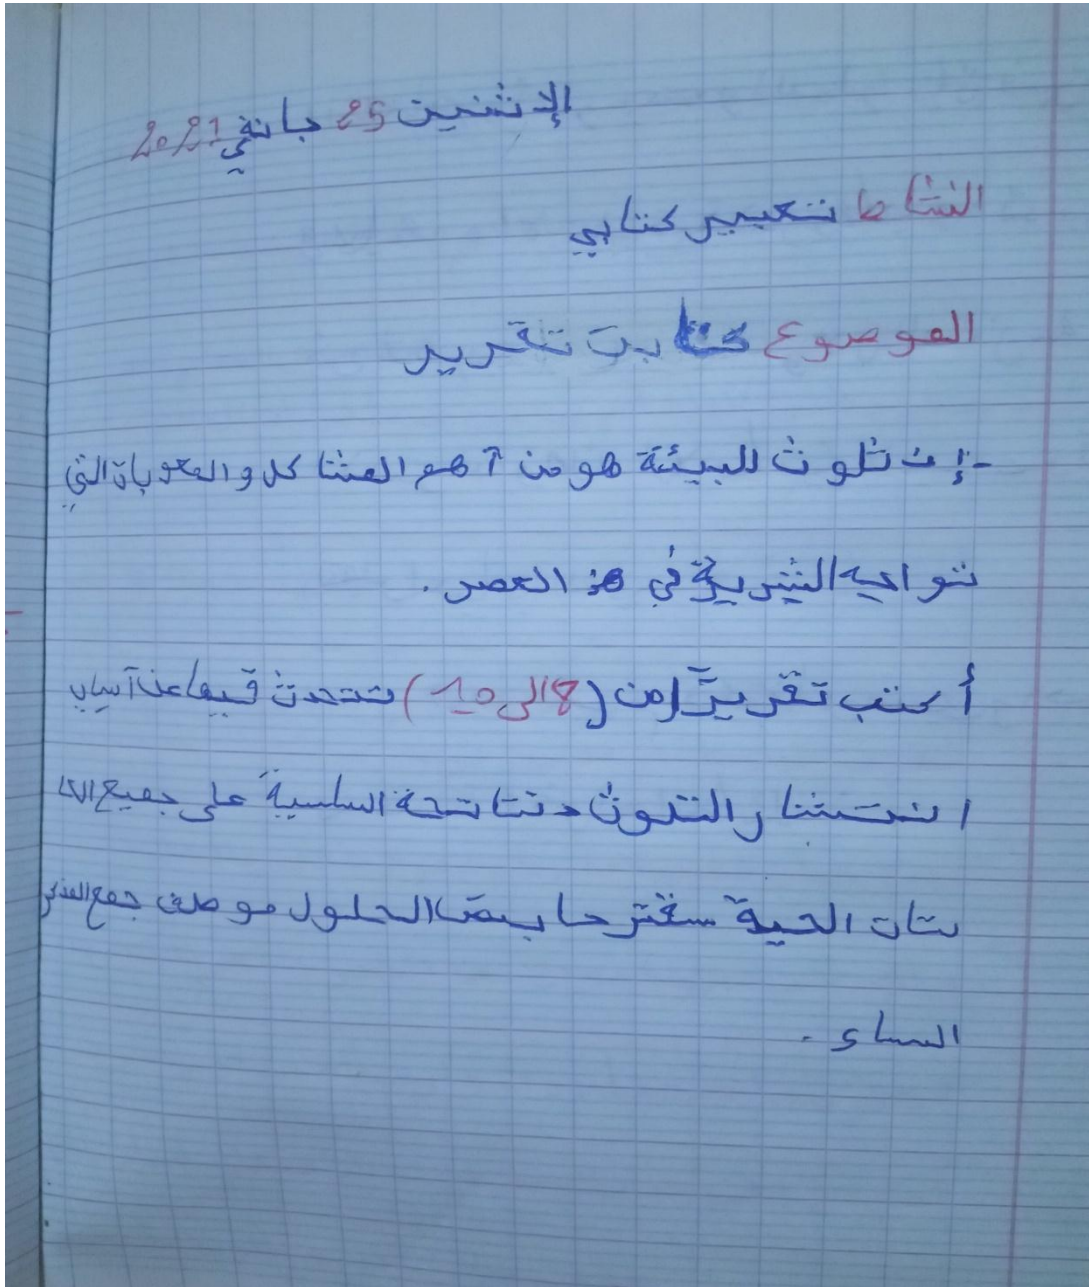 الإثنين 25 جانفي 2021
النشاط تعبير كتابي
الموضوع كتابت تقرير
- إن تلوث للبيئة هو من أهم المشاكل والصعوبات التي
تتواجه البشرية في هذ العصر .
أكتب تقريرًا من (8 الى 10) تتحدث فيها عن آسباب
انتشار التلوث و نتائجة السلسية على جميع الكا
ئنات الحية سقترحا بعض الحلول موظف جمع المذكر
السساء .